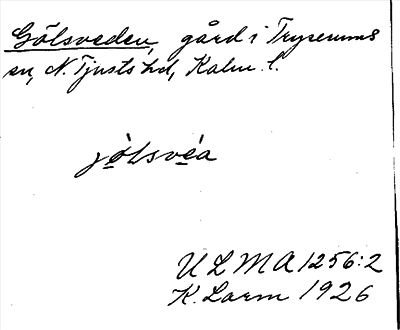 Gölsveden, gård i Tryserums
sn, N. Tjusts hd, Kalm. l.
jölsvéa
ULMA 1256:2
K. Larm 1926